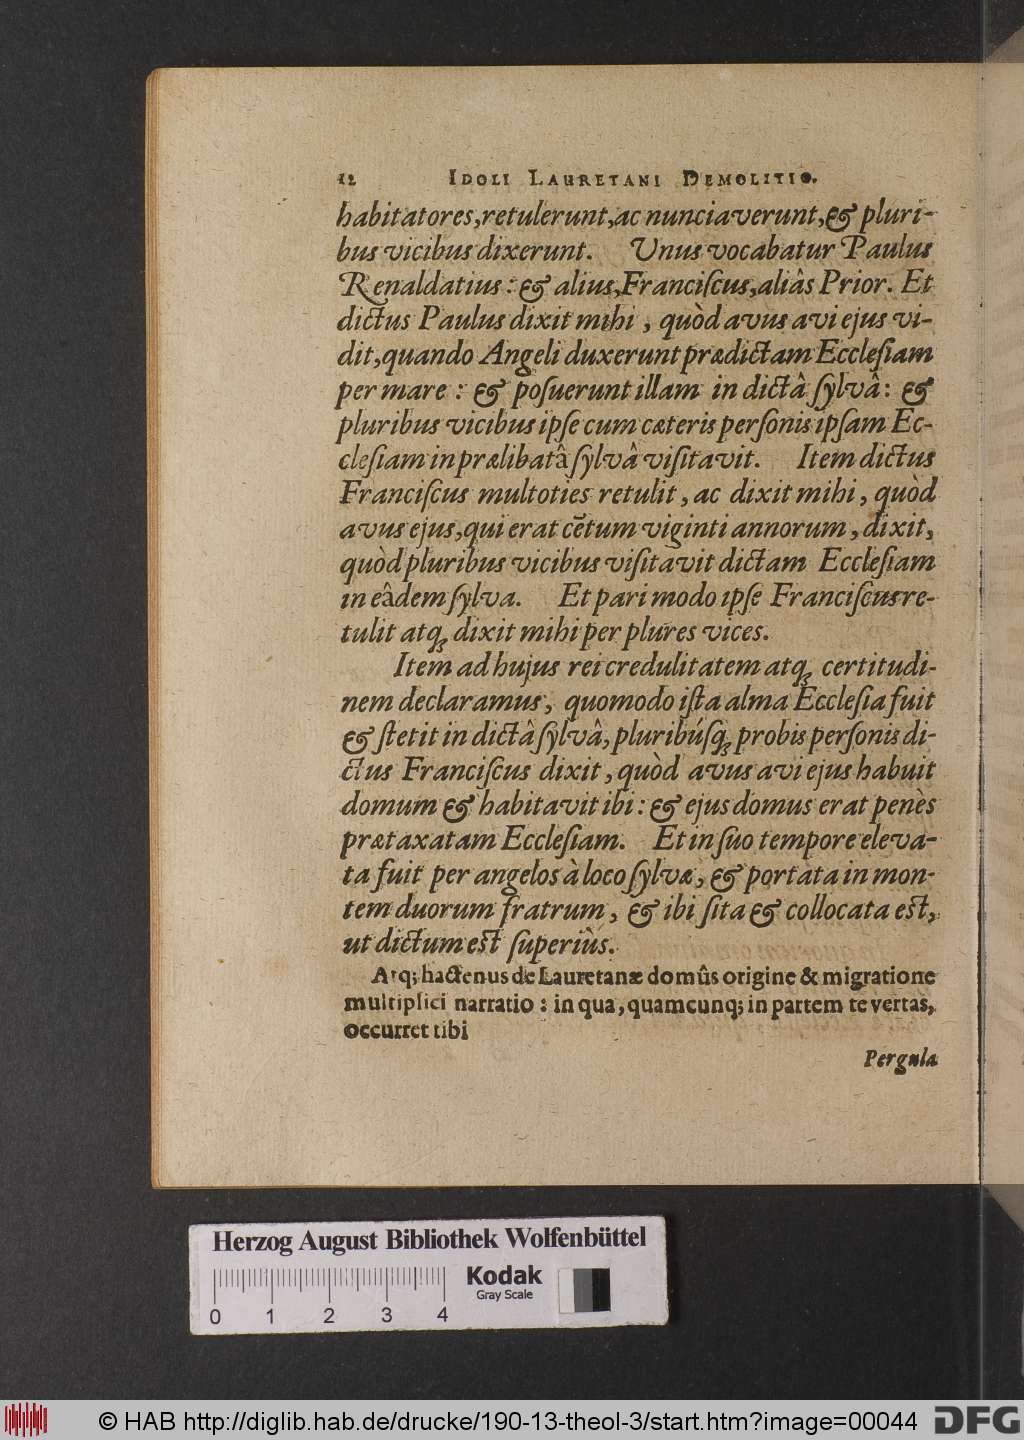 12 IDOLI LAURETANI DEMOLITIO.
habitatores, retulerunt, ac nunciaverunt, & pluri-
bus vicibus dixerunt. Unus vocabatur Paulus
Renaldatius: & alius, Franciſcus, aliâs Prior. Et
dictus Paulus dixit mihi, quòd avus avi ejus vi-
dit, quando Angeli duxerunt prædictam Eccleſiam
per mare: & poſuerunt illam in dictâ ſylvâ: &
pluribus vicibus ipſe cum cæteris perſonis ipſam Ec-
cleſiam in prælibatâ ſylvâ viſitavit. Item dictus
Franciſcus multoties retulit, ac dixit mihi, quòd
avus ejus, qui erat cẽtum viginti annorum, dixit,
quòd pluribus vicibus viſitavit dictam Eccleſiam
in eâdem ſylva. Et pari modo ipſe Franciſcus re-
tulit atq; dixit mihi per plures vices.
Item ad hujus rei credulitatem atq; certitudi-
nem declaramus, quomodo iſta alma Eccleſia fuit
& ſtetit in dictâ ſylvâ, pluribúſq; probis perſonis di-
ctus Franciſcus dixit, quòd avus avi ejus habuit
domum & habitavit ibi: & ejus domus erat penès
prætaxatam Eccleſiam. Et in ſuo tempore eleva-
ta fuit per angelos à loco ſylvæ, & portata in mon-
tem duorum fratrum, & ibi ſita & collocata eſt,
ut dictum eſt ſuperiùs.
Atq; hactenus de Lauretanæ domûs origine & migratione
multiplici narratio: in qua, quamcunq; in partem te vertas,
occurret tibi
Pergula
Herzog August Bibliothek Wolfenbüttel
Kodak
Gray Scale
0 1 2 3 4
© HAB http://diglib.hab.de/drucke/190-13-theol-3/start.htm?image=00044
DFG